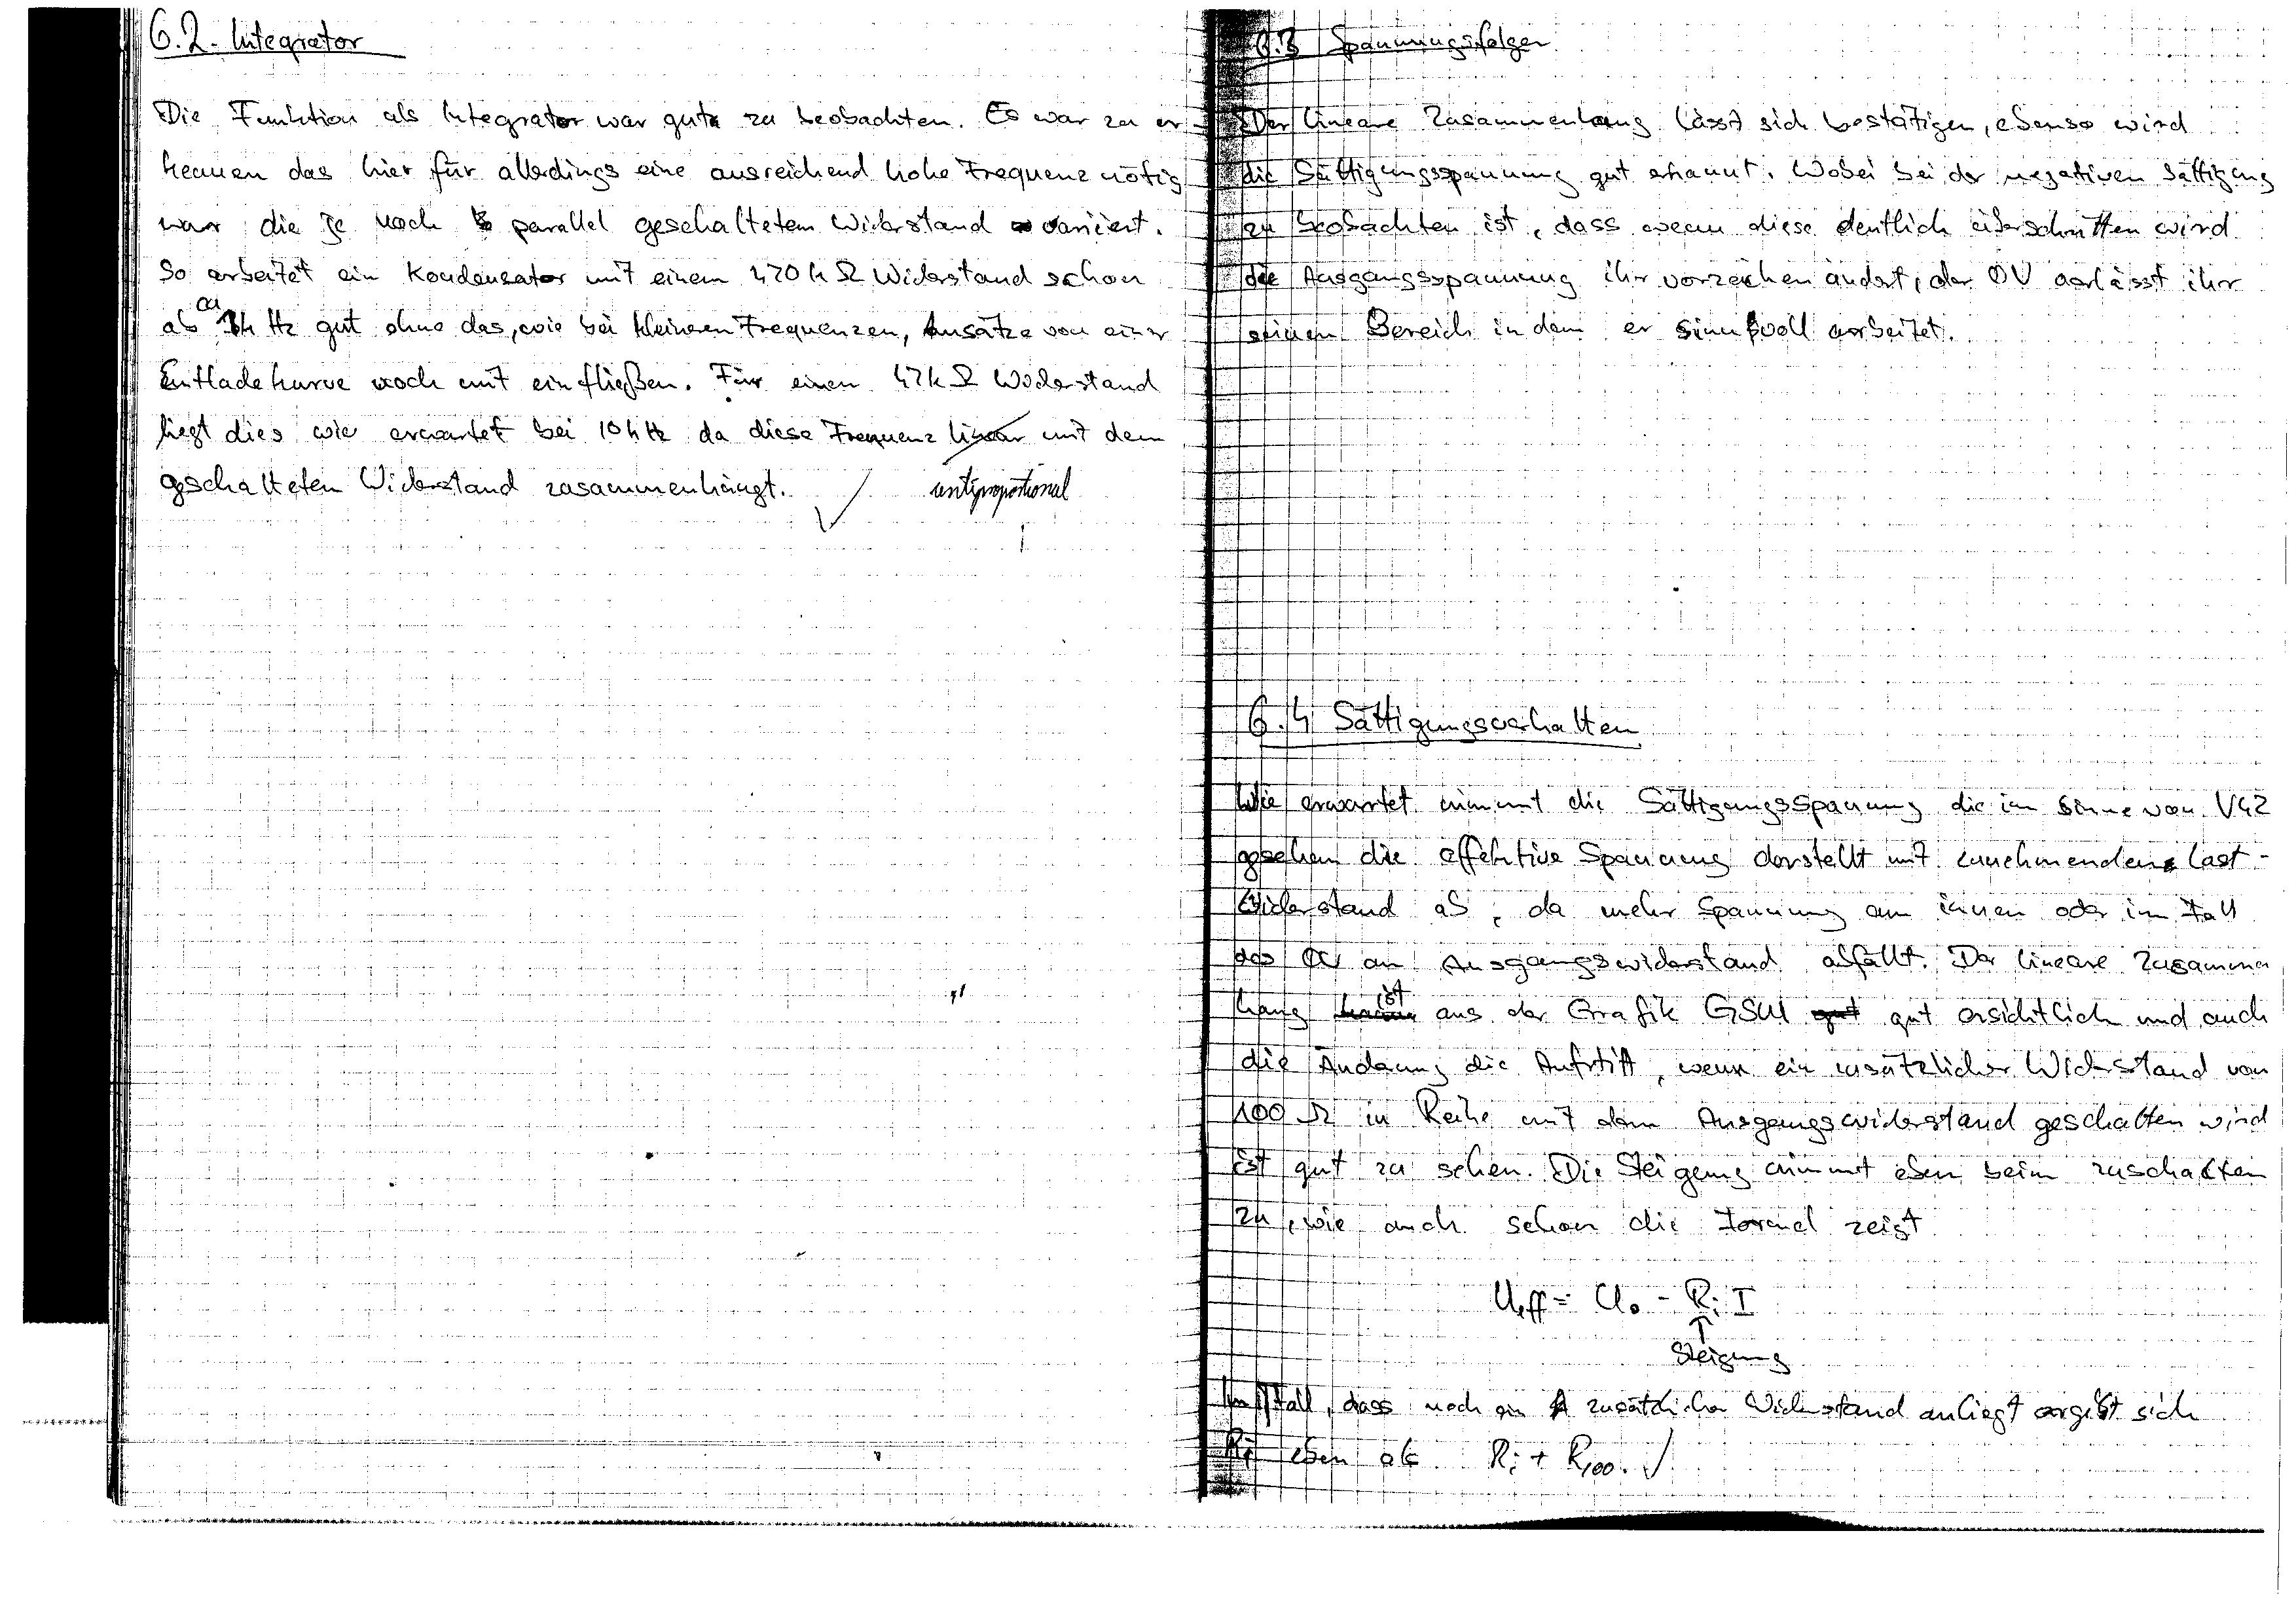 6.2. Integrator
Die Funktion als Integrator war gut zu beobachten. Es war zu er
kennen das hier für allerdings eine ausreichend hohe Frequenz nötig
war die je nach parallel geschaltetem Widerstand variiert.
So arbeitet ein Kondensator mit einem 470 kΩ Widerstand schon
ca
ab 1kHz gut ohne das, wie bei kleineren Frequenzen, Ansätze von einer
Entladekurve noch mit einfließen. Für einen 47kΩ Widerstand
liegt dies wie erwartet bei 10kHz da diese Frequenz linear mit dem
geschalteten Widerstand zusammenhängt. ✓ antiproportional
6.3 Spannungsfolger
Der lineare Zusammenhang lässt sich bestätigen, ebenso wird
die Sättigungsspannung gut erkannt. Wobei bei der negativen Sättigung
zu beobachten ist, dass wenn diese deutlich überschritten wird
die Ausgangsspannung ihr vorzeichen ändert, der OV verlässt ihr
seinen Bereich in dem er sinnvoll arbeitet.
6.4 Sättigungsverhalten
Wie erwartet nimmt die Sättigungsspannung die im Sinne von V42
gesehen die effektive Spannung darstellt mit zunehmenden Last-
widerstand ab, da mehr Spannung am innen oder im Fall
des OV an Ausgangswiderstand abfällt. Der lineare Zusammen
hang ist aus der Grafik GSU1 gut ersichtlich und auch
die Änderung die Auftritt, wenn ein zusätzlicher Widerstand von
100 Ω in Reihe mit dem Ausgangswiderstand geschalten wird
ist gut zu sehen. Die Steigung nimmt eben beim zuschalten
zu, wie auch schon die Formel zeigt
Ueff = U₀ - Ri I
↑
Steigung
Im Fall, dass noch ein zusätzlicher Widerstand anliegt ergibt sich
Ri eben als Ri + R100. ✓